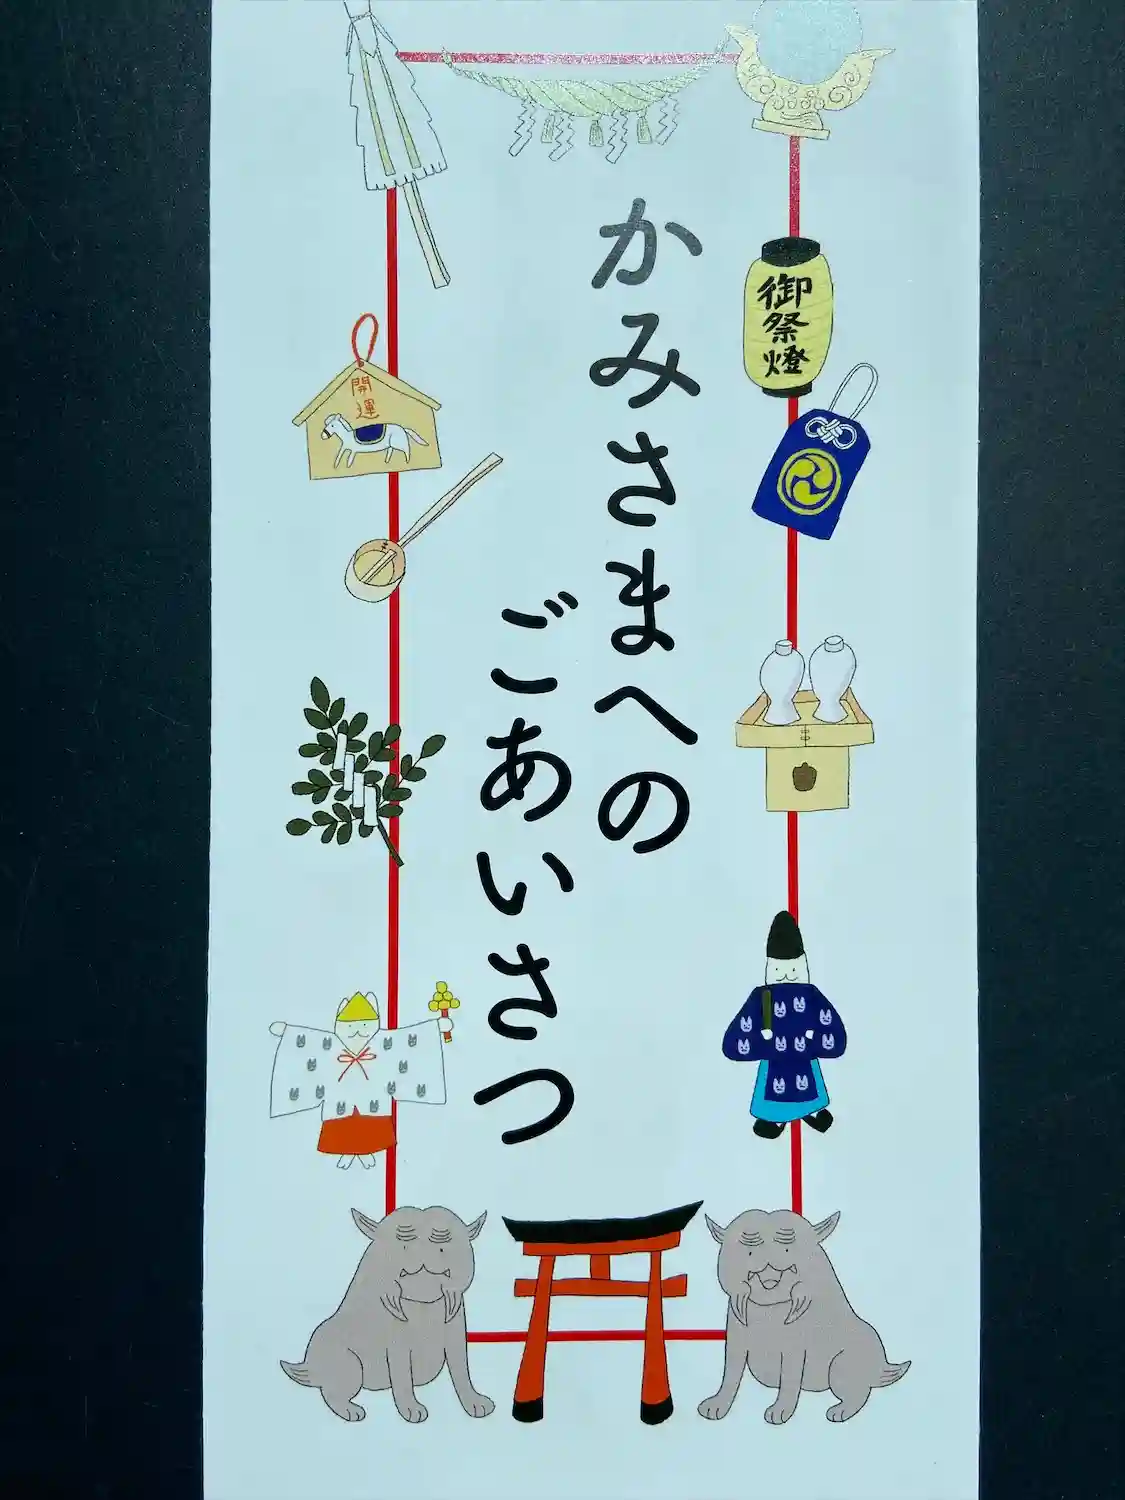 かみさまへの
ごあいさつ
御祭燈
開運